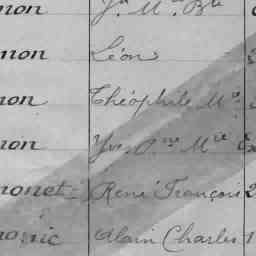 non Jn Mie Bte
non Léon
non Théophile Me
non Yves Pre Mie
nonet René François 2
nonic Alain Charles 1